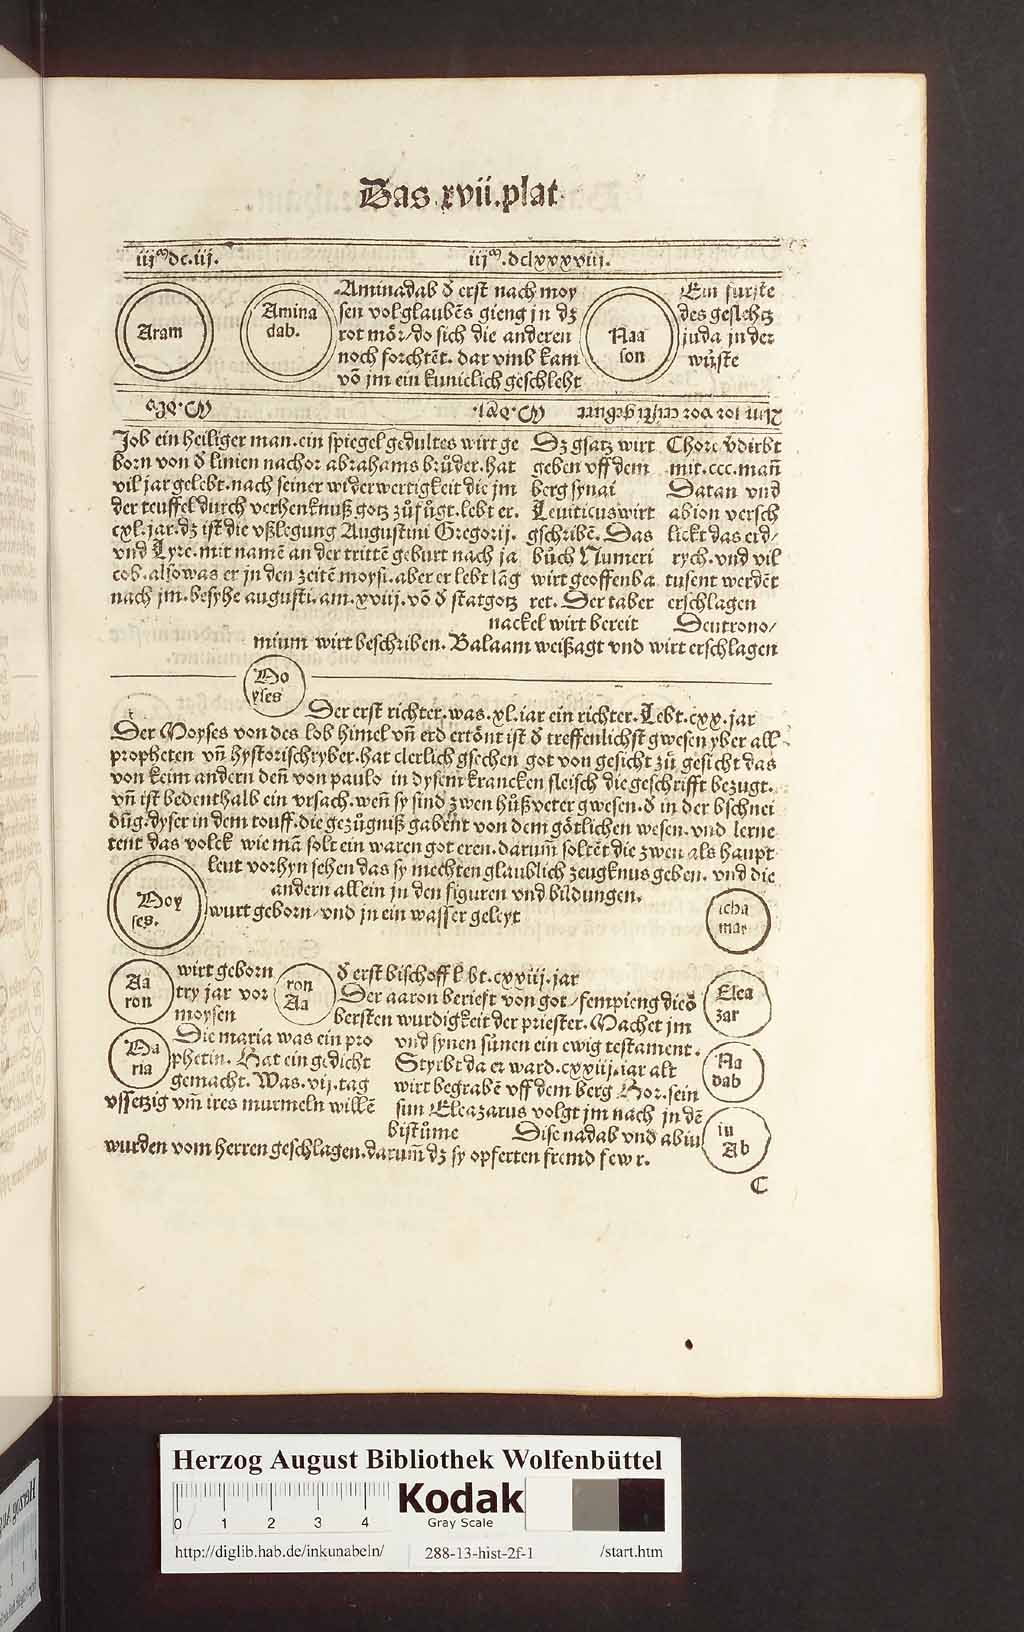 Das .xvii. plat
iijᵐdc.iij. iijᵐ.dclxxxviij.
Aram
Amina
dab.
Aminadab ď erst nach moy
sen volglaubēs gieng jn dʒ
rot mör/do sich die anderen
noch forchtēt. dar vmb kam
vō jm ein kuniclich geschleht
Naa
son
Ein furste
des geslehtʒ
juda jn der
wůste
Job ein heiliger man.ein spiegel gedultes wirt ge
born von ď linien nachor abrahams brůder.hat
vil jar gelebt.nach seiner widerwertigkeit die jm
der teuffel durch verhenknuß gotʒ zůfůgt.lebt er.
cxl.jar.dʒ ist die vßlegung Augustini Gregorij.
vnd Lyre.mit namē an der trittē geburt nach ja
cob.also was er jn den zeitē moysi.aber er lebt lāg
nach jm.besyhe augusti.am.xviij.vō ď statgotʒ
Dʒ gsatʒ wirt
geben vff dem
berg synai
Leuiticus wirt
gschribē. Das
bůch Numeri
wirt geoffenba
ret. Der taber
nackel wirt bereit
Chore v̄dirbt
mit.ccc.mañ
Datan vnd
abion versch
lickt das erd/
rych.vnd vil
tusent werdēt
erschlagen
Deutrono/
mium wirt beschriben. Balaam weißagt vnd wirt erschlagen
Mo
yses
Der erst richter.was.xl.iar ein richter.Lebt.cxx.jar
Der Moyses von des lob himel vñ erd ertönt ist ď treffenlichst gwesen yber all
propheten vñ hystorischryber.hat clerlich gsechen got von gesicht zů gesicht das
von keim andern deñ von paulo in dysem krancken fleisch die geschrifft bezugt.
vñ ist bedenthalb ein vrsach.weñ sy sind zwen hůßveter gwesen.ď in der bschnei
dūg.dyser in dem touff.die gezůgniß gabent von dem götlichen wesen.vnd lerne
tent das volck wie mā solt ein waren got eren.darum̄ soltēt die zwen als haupt
leut vorhyn sehen das sy mechten glaublich zeugknus geben. vnd die
andern allein jn den figuren vnd bildungen.
Moy
ses.
wurt geborn/vnd jn ein wasser geleyt
icha
mar
Aa
ron
wirt geborn
try jar vor
moysen
ron
Aa
ď erst bischoff l bt.cxviij.jar
Der aaron berieft von got/fempieng die ö
bersten wurdigkeit der priester.Machet jm
vnd synen sůnen ein ewig testament.
Styrbt da er ward.cxxiij.iar alt
wirt begrabē vff dem berg Hor.sein
sun Eleazarus volgt jm nach jn dē
bistůme
Elea
zar
Ma
ria
Die maria was ein pro
phetin. Hat ein gedicht
gemacht. Was.vij.tag
vssetzig vm̄ ires murmeln willē
Na
dab
iu
Ab
Dise nadab vnd abiu
wurden vom herren geschlagen.darum̄ dʒ sy opferten fremd fewr.
C
Herzog August Bibliothek Wolfenbüttel
0 1 2 3 4
Kodak
Gray Scale
http://diglib.hab.de/inkunabeln/ 288-13-hist-2f-1 /start.htm